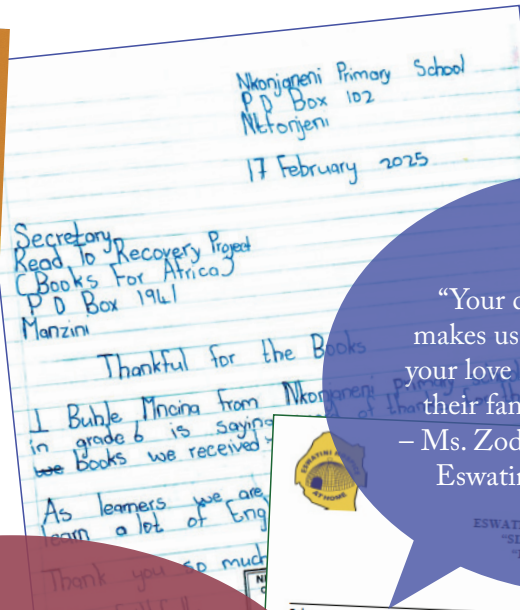 Nkonjaneni Primary School
P O Box 102
Ntfonjeni
17 February 2025
Secretary
Read To Recovery Project
(Books For Africa)
P O Box 1941
Manzini
Thankful for the Books
I Buhle Mncina from Nkonjaneni primary
in grade 6 is saying of
books we received
As learners we are
learn a lot of Eng
Thank you so much
"Your
makes us
your love
their fam
– Ms. Zod
Eswatin
ESWATINI
AT HOME
ESWAT